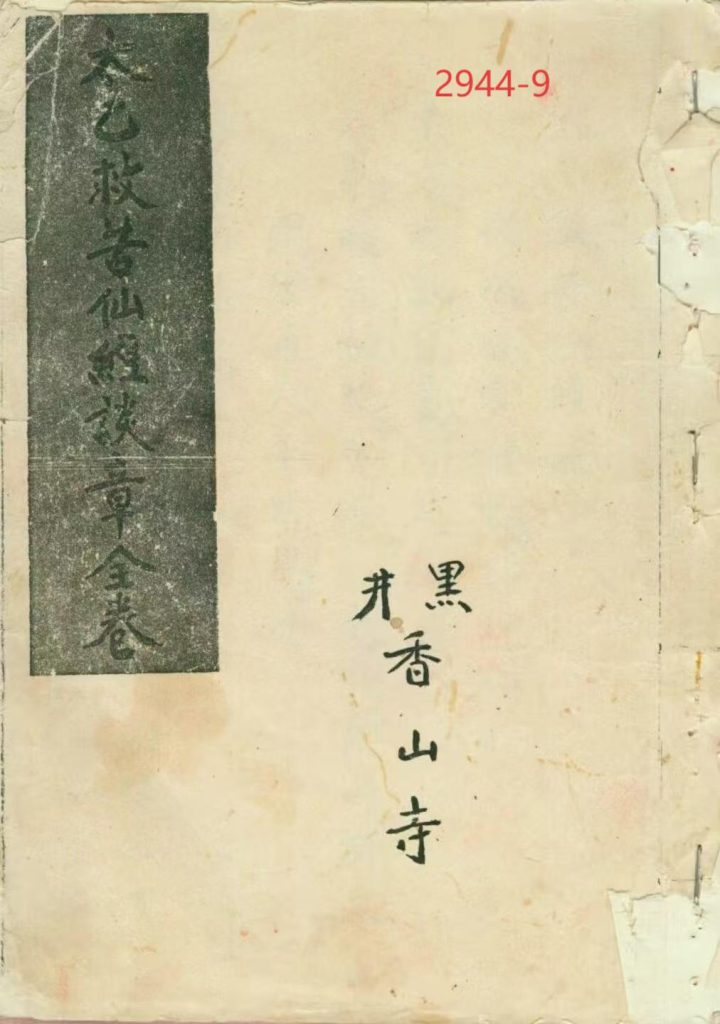 2944-9
黑井
香山寺
太乙救苦仙經談章全卷